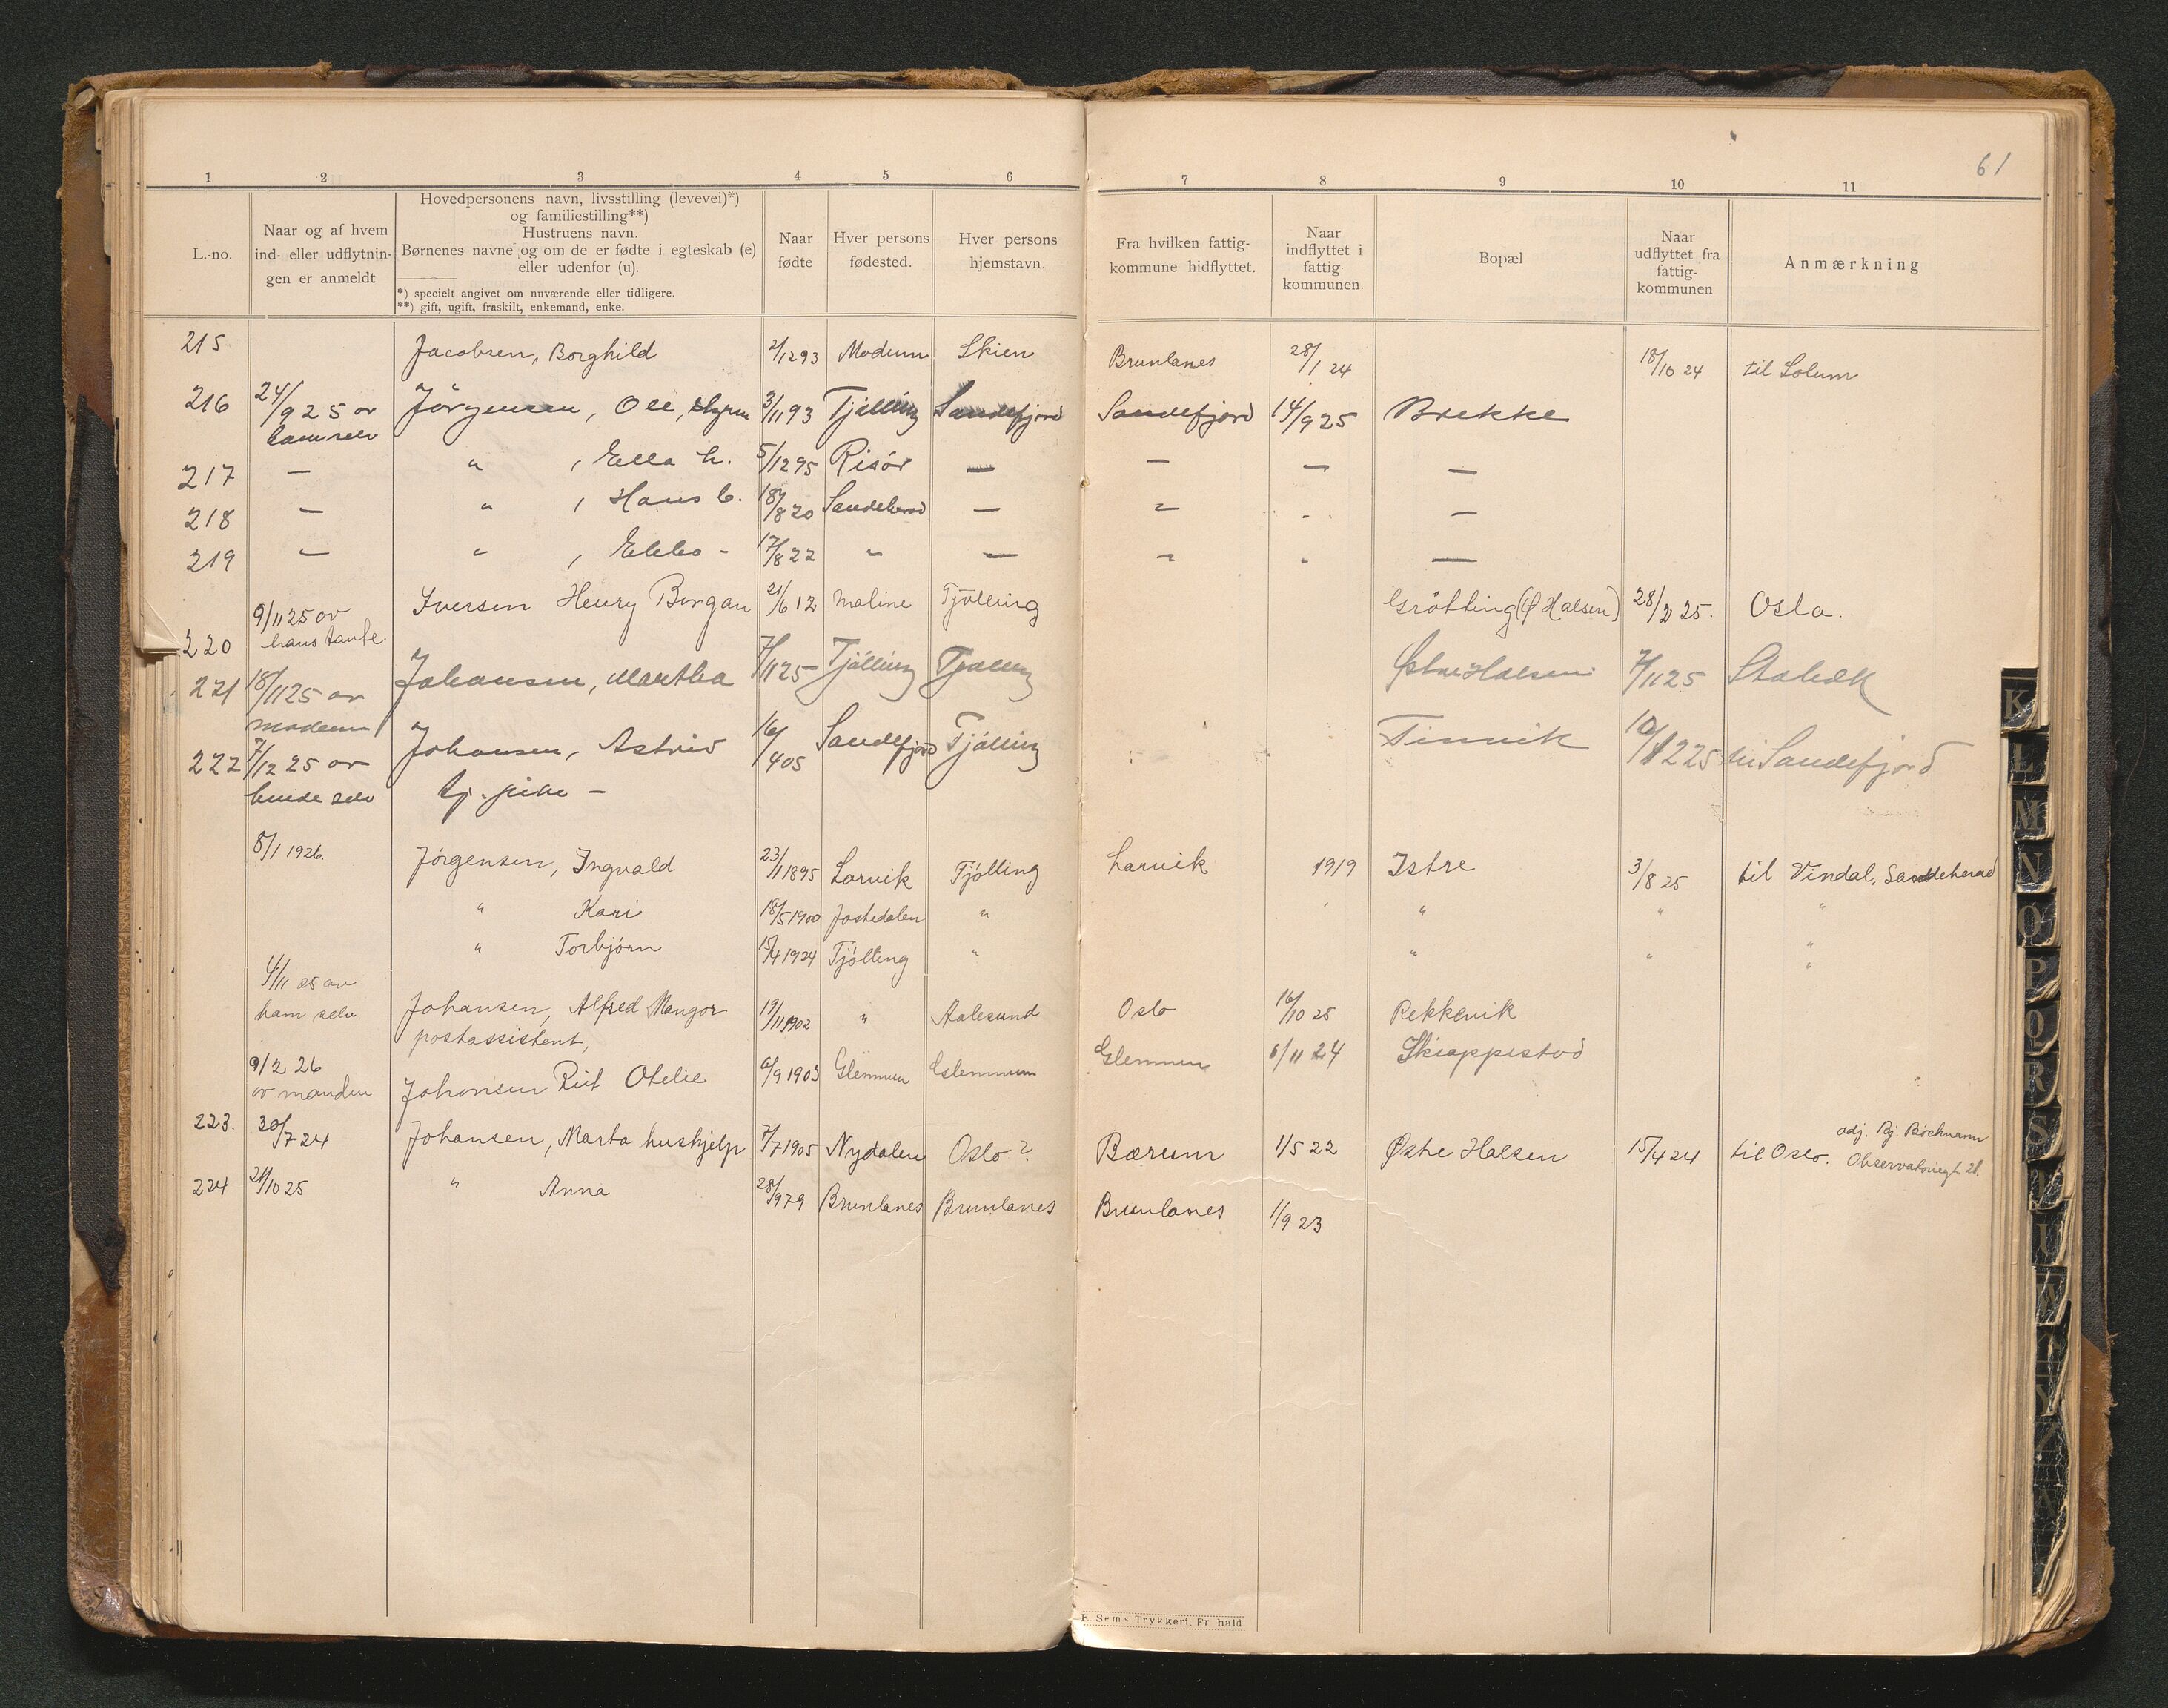 61
1 2 3 4 5 6 7 8 9 10 11
L.-no.
Naar og af hvem
ind- eller udflytnin-
gen er anmeldt
Hovedpersonens navn, livsstilling (levevei)*)
og familiestilling**)
Hustruens navn.
Børnenes navne og om de er fødte i egteskab (e)
eller udenfor (u).
*) specielt angivet om nuværende eller tidligere.
**) gift, ugift, fraskilt, enkemand, enke.
Naar
fødte
Hver persons
fødested.
Hver persons
hjemstavn.
Fra hvilken fattig-
kommune hidflyttet.
Naar
indflyttet i
fattig-
kommunen.
Bopæl
Naar
udflyttet fra
fattig-
kommunen
Anmærkning
215 Jacobsen, Borghild 2/12 93 Modum Skien Brunlanes 28/1 24 18/10 24 til Solum
216 24/9 25 av Jörgensen, Ole, 3/11 93 Tjölling Sandefjord Sandefjord 14/9 25 Brekke
ham selv
217 — " , Ella H. 5/12 95 Risör — — — —
218 — " , Hans C. 18/8 20 Sandeherad — " - —
219 — " , Ebba - 17/8 22 " — " " —
9/11 25 av Iversen Henry Borgan 21/6 12 Maline Tjölling Grötting (Ø Halsen) 28/2 25. Oslo.
220 hans tante.
221 18/11 25 av Johansen, Martha 7/1 25 Tjölling Tjölling Østre Halsen 7/11 25 Stabæk
moderen
222 7/12 25 av Johansen, Astrid 16/4 05 Sandefjord Tjölling 10/12 25 til Sandefjord
hende selv tj. pike -
8/1 1926. Jörgensen, Ingvald 23/1 1895 Larvik Tjölling Larvik 1919 Istre 3/8 25 til Vindal, Sandeherad
" Kari 18/5 1900 Jostedalen " " " " "
" Torbjörn 15/4 1924 Tjölling " " " "
4/11 25 av
ham selv Johansen, Alfred Mangor 19/11 1902 " Aalesund Oslo 16/10 25 Rekkevik
postassistent,
9/2 26 Johansen Rut Otelie 6/9 1903 Glemmen Glemmen Glemmen 6/11 24 Skiappestad
av manden
223. 30/7 24 Johansen, Marta hushjelp 7/7 1905 Nydalen Oslo? Bærum 1/5 22 Østre Halsen 15/4 24 til Oslo. adj. Bj. Bochmann
Observatoriegt 21.
224 21/10 25 " Anna 28/9 79 Brunlanes Brunlanes Brunlanes 1/9 23
E. Sems Trykkeri, Fr.hald
K
L
M
N
O
P
Q
R
S
T
U
W
Y